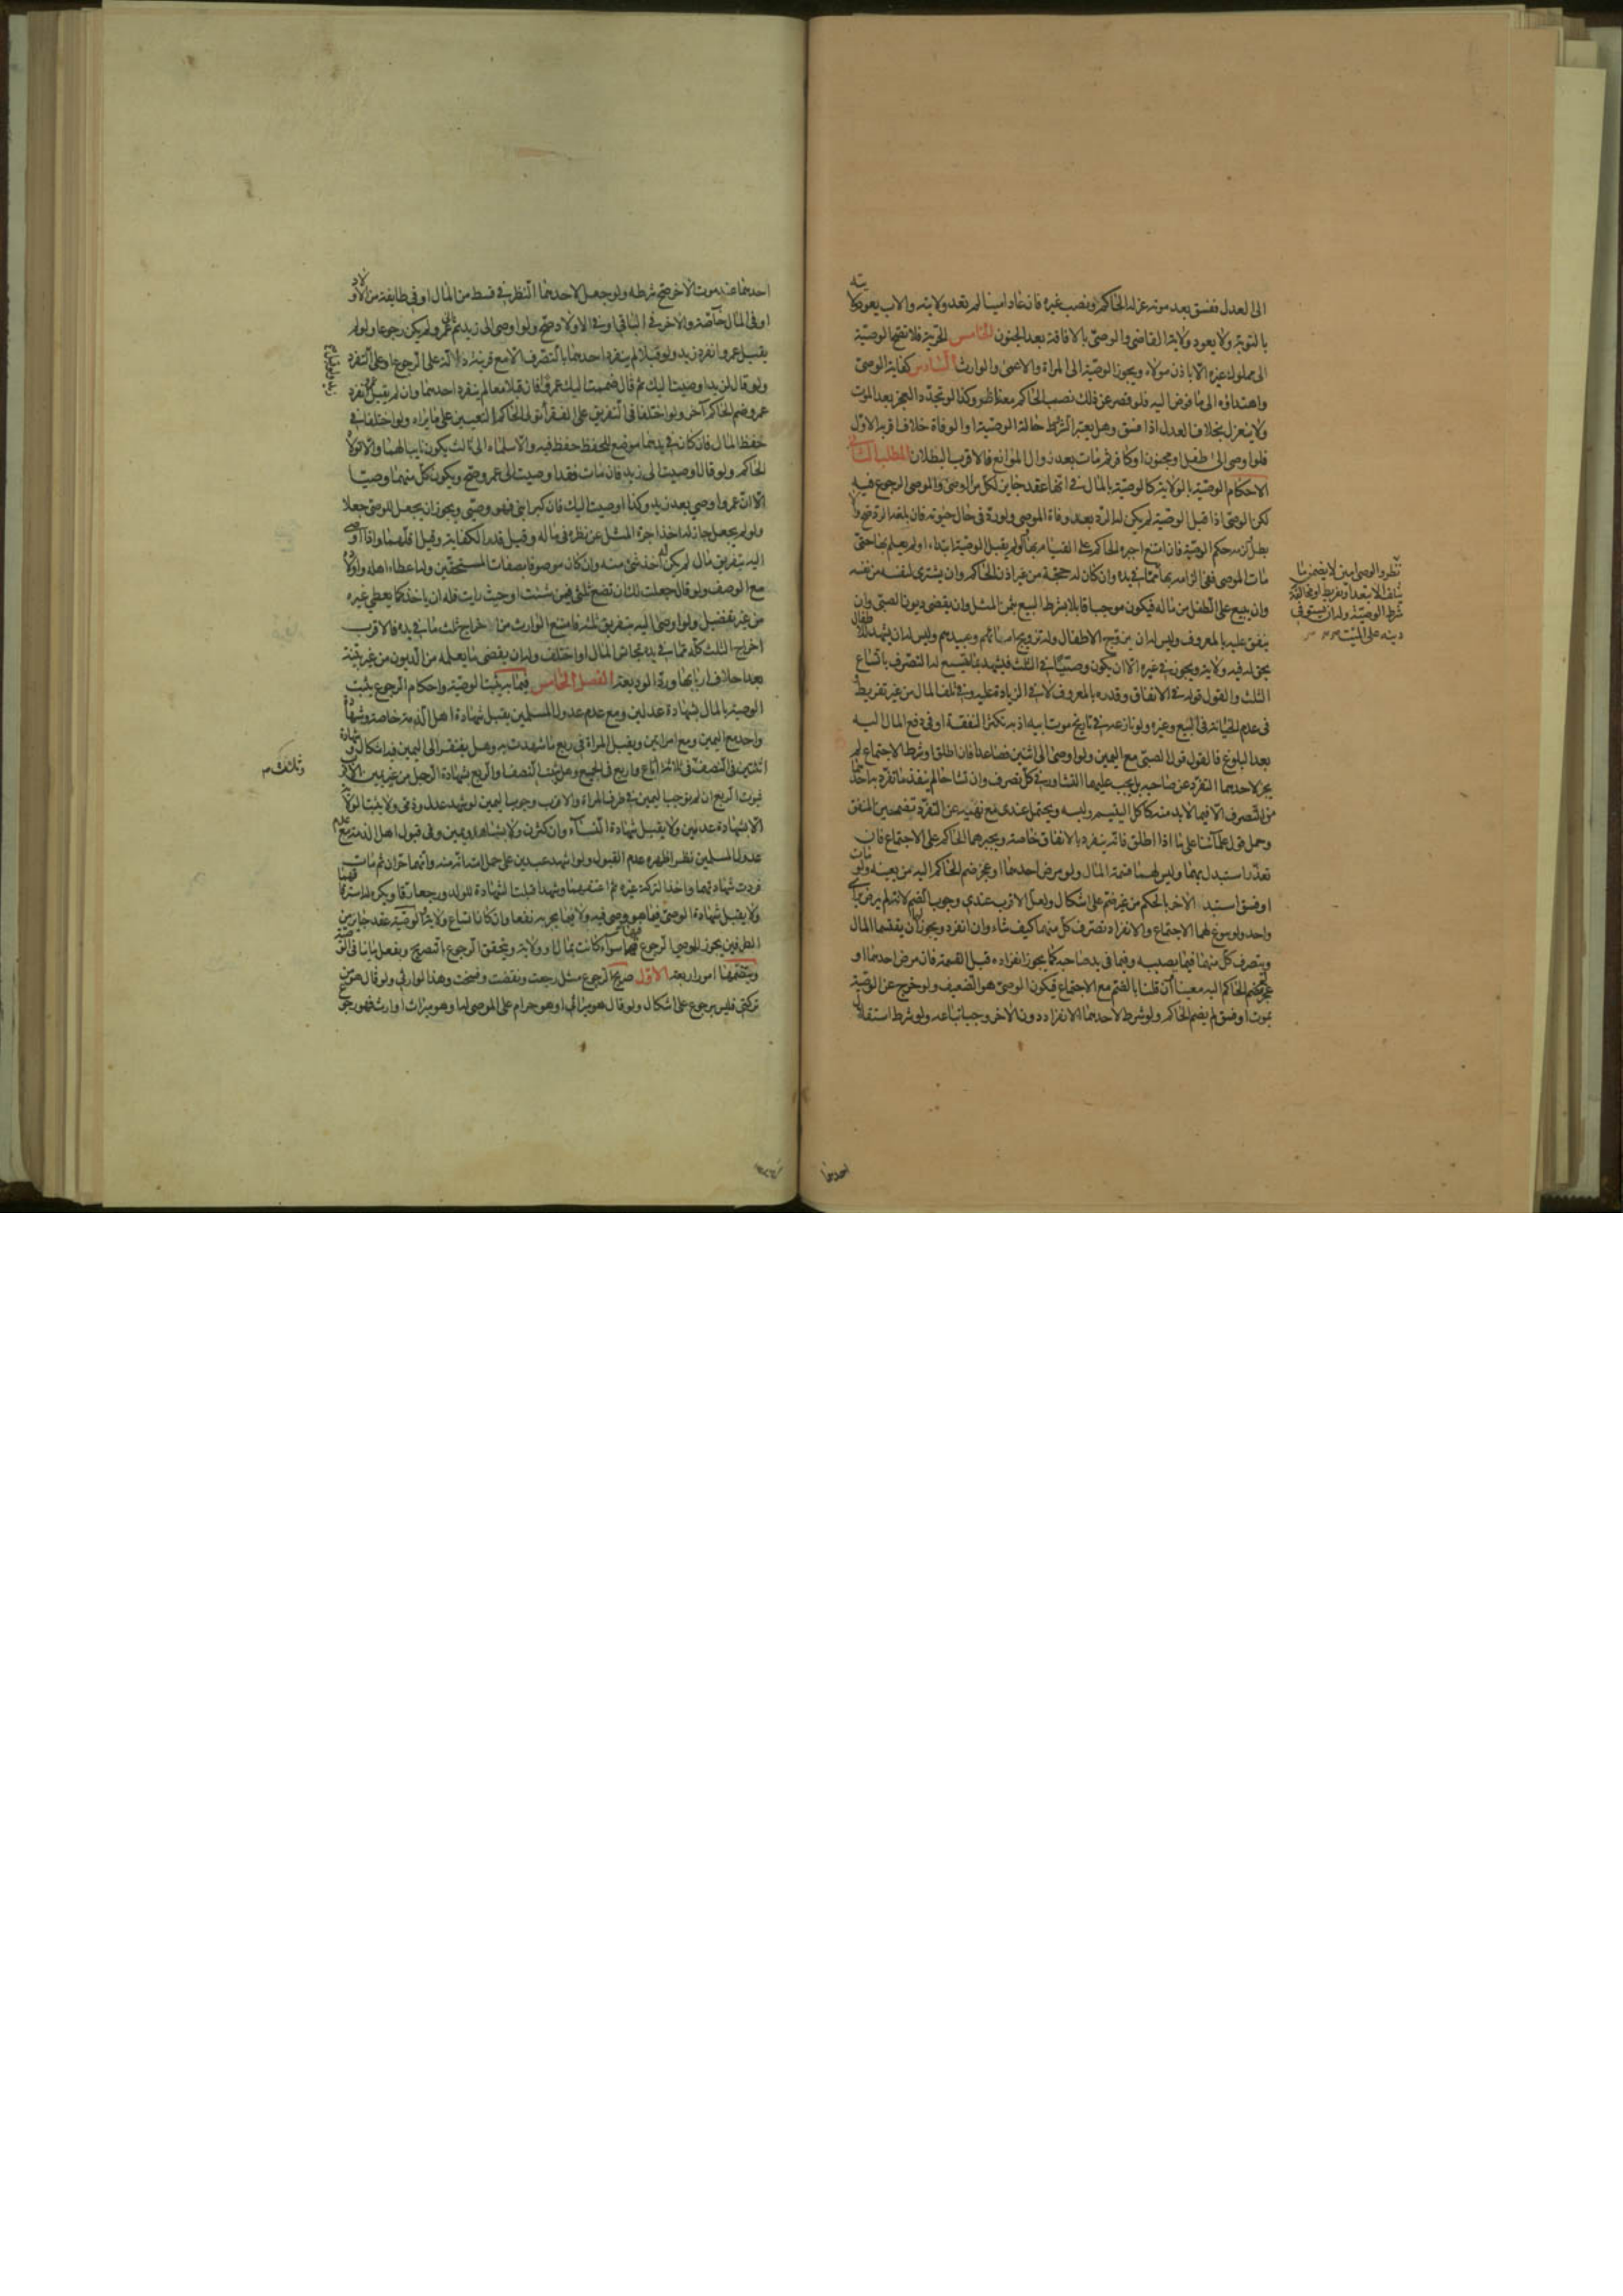 الى العدل ففسق بعد موته عزله الحاكم ونصب غيره فان عاد امينا لم يعد ولايته والاب يعود ولايته
بالتوبة ولا يعود ولاية القاضي والوصي بالافاقة بعد الجنون الخامس الحرية فلا تصح الوصية
الى مملوك غيره الا باذن مولاه ويجوز الوصية الى المراة والاعمى والوارث السادس كفاية الوصي
واهتداؤه الى ما فوض اليه فلو قصر عن ذلك نصب الحاكم معه اظهر وكذا لو تجدد العجز بعد الموت
ولا ينعزل بخلاف العدل اذا فسق وهل يعتبر الشرائط حالة الوصية او الوفاة خلاف اقربه الاول
فلو اوصى الى طفل او مجنون او كافر ثم مات بعد زوال الموانع فالاقرب البطلان المطلب الثاني في
الاحكام الوصية بالولاية كالوصية بالمال في انها عقد جايز لكل من الوصي والموصي الرجوع فيه
لكن الوصي اذا قبل الوصية لم يكن له الرد بعد وفاة الموصي ولو رد في حال حيوته فان بلغه الرد صح والا
بطل الرد حكم الوصية فان امتنع اجبره الحاكم على القيام بها ولو لم يقبل الوصية ابتداء او لم يعلم بها حتى
مات الموصي ففي الزامه بها
وان يبيع على الطفل من ماله فيكون موجبا قابلا بشرط البيع بثمن المثل وان يقضي ديون الصبي وان
ينفق عليه بالمعروف وليس له ان يزوج الاطفال وله تزويج امائهم وعبيدهم وليس له ان يشهد للاطفال
بحق له فيه ولاية ويجوز في غيره الا ان يكون وصيا في الثلث فيشهد بما يتسع له التصرف باتساع
الثلث والقول قوله في الانفاق وقدره بالمعروف لا في الزيادة عليه وفي تلف المال من غير تفريط
في عدم الخيانة في البيع وغيره ولو نازعه في تاريخ موت ابيه اذ به تكثر النفقة او في دفع المال اليه
بعد البلوغ فالقول قول الصبي مع اليمين ولو اوصى الى اثنين فصاعدا فان اطلق او شرط الاجتماع لم
يجز لاحدهما التفرد عن صاحبه بل يجب عليهما التشاور في كل تصرف وان تشاحا لم ينفذ ما تفرد به احدهما
من التصرف الا فيما لا بد منه كاكل اليتيم ولبسه ويحتمل عندي مع نهيه عن التفرد تضمين المنفق
وحمل قول علمائنا على ما اذا اطلق فانه ينفرد بالانفاق خاصة ويجبرهما الحاكم على الاجتماع فان
تعذر استبدل بهما وليس لهما قسمة المال ولو مرض احدهما او عجز ضم الحاكم اليه من يعينه ولو مات
او فسق استبد الاخر بالحكم من غير ضم على اشكال ولعل الاقرب عندي وجوب الضم لانه لم يرض براي
واحد ولو سوغ لهما الاجتماع والانفراد تصرف كل منهما كيف شاء وان انفرد ويجوز ان يقتسما المال
ويتصرف كل منهما فيما يصيبه وفيما في يد صاحبه كما يجوز انفراده قبل القسمة فان مرض احدهما او
عجز ضم الحاكم اليه معينا ان قلنا بالضم مع الاجتماع فيكون الوصي هو الضعيف ولو خرج عن الوصية
بموت او فسق لم يضم الحاكم ولو شرط لاحدهما الانفراد دون الاخر وجب اتباعه ولو شرط استقلال
نظر والوصي امين لا يضمن ما
يتلف الا بتعد او تفريط او مخالفة
شرط الوصية وله ان يستوفي
دينه على الميت
احدهما
احدهما عند موت الاخر صح شرطه ولو جعل لاحدهما النظر في قسط من المال او في طايفة من الاولاد
او في المال خاصة والاخر في الباقي او في الاولاد صح ولو اوصى الى زيد ثم الى عمرو لم يكن رجوعا ولو لم
يقبل عمرو انفرد زيد ولو قبلا لم ينفرد احدهما بالتصرف الا مع قرينة دالة على الرجوع او على التفرد
ولو قال لزيد اوصيت اليك ثم قال ضممت اليك عمرا فان قبلا معا لم ينفرد احدهما وان لم يقبل عمرو انفرد
عمرو ضم الحاكم آخر ولو اختلفا في التفريق على الفقراء تولى الحاكم التعيين على ما يراه ولو اختلفا في
حفظ المال فان كان في يدهما موضع للحفظ حفظ فيه والا سلماه الى ثالث يكون نايبا لهما والا تولاه
الحاكم ولو قال اوصيت الى زيد فان مات فقد اوصيت الى عمرو صح ويكون كل منهما وصيا
الا ان عمروا وصي بعد زيد وكذا اوصيت اليك فان كبر ابني فهو وصيي ويجوز ان يجعل للوصي جعلا
ولو لم يجعل جاز له اخذ اجرة المثل عن نظره في ماله وقيل قدر الكفاية وقيل اقلهما واذا اوصى
اليه بتفريق مال لم يكن له اخذ شيء منه وان كان موصوفا بصفات المستحقين وله اعطاء اهله واولاده
مع الوصف ولو قال جعلت لك ان تضع ثلثي فيمن شئت او حيث رايت فله ان ياخذ كما يعطي غيره
من غير تفضيل ولو اوصى اليه بتفريق ثلثه فامتنع الوارث من اخراج ثلث ما في يده فالاقرب
اخراج الثلث كله مما في يده تجانس المال او اختلف وله ان يقضي ما يعلمه من الديون من غير بينة
بعد احلاف اربابها ورد الوديعة الفصل الخامس فيما به يثبت الوصية واحكام الرجوع يثبت
الوصية بالمال بشهادة عدلين ومع عدم عدول المسلمين يقبل شهادة اهل الذمة خاصة وشهادة
واحد مع اليمين ومع امراتين ويقبل المراة في ربع ما شهدت به وهل يفتقر الى اليمين فيه اشكال وشهادة
اثنتين في النصف وثلاث في ثلاثة ارباع واربع في الجميع وهل يثبت النصف او الربع بشهادة الرجل من غير يمين الاقرب
ثبوت الربع ان لم نوجب اليمين في طرف المراة والاقرب وجوب اليمين لو شهد عدل وذمي ولا يثبت الولاية
الا بشهادة عدلين ولا يقبل شهادة النساء وان كثرن ولا بشاهد ويمين وفي قبول اهل الذمة مع عدم
عدول المسلمين نظر اظهره عدم القبول ولو اشهد عبدين على حمل امته انه منه وانهما حران ثم مات
فردت شهادتهما واخذ التركة غيره ثم اعتقهما وشهدا قبلت الشهادة للولد ورجعا رقا ويكره له استرقاقهما
ولا يقبل شهادة الوصي فيما هو وصي فيه ولا فيما يجر به نفعا
الطرفين يجوز للموصي الرجوع فيها سواء كانت بمال او ولاية ويتحقق الرجوع بالتصريح وبفعل ما ينافي الوصية
امور اربعة الاول صريح الرجوع مثل رجعت ونقضت وفسخت وهذا لوارثي ولو قال هو من
تركتي فليس برجوع على اشكال ولو قال هو ميراثي او هو حرام على الموصى له او هو ميراث او ارث فهو رجوع